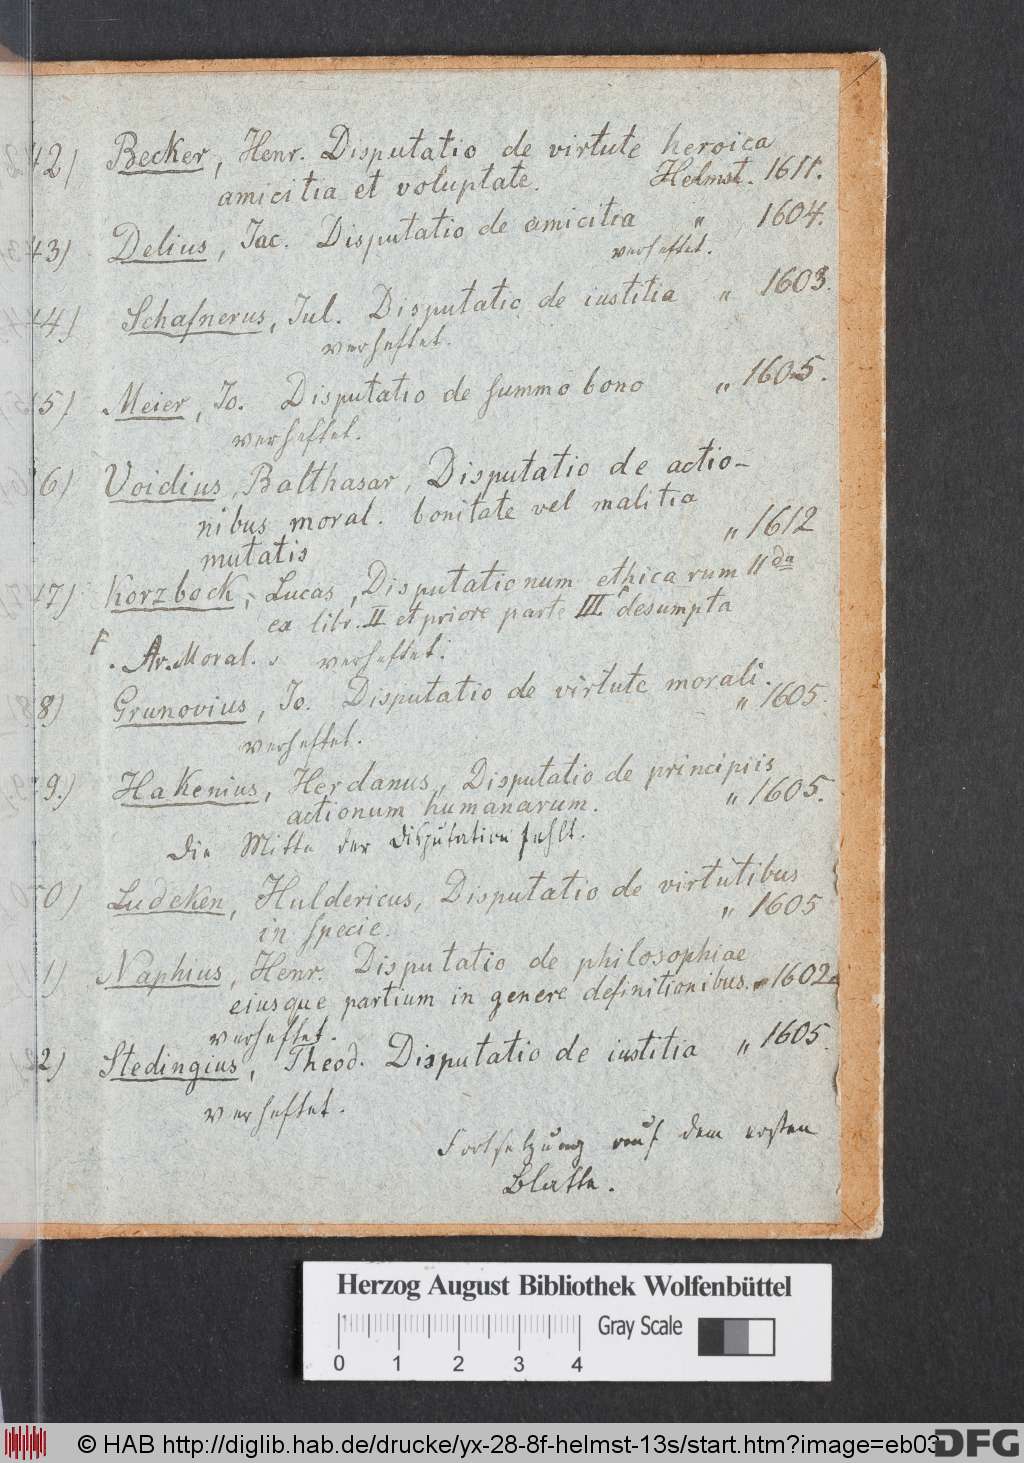 42) Becker, Henr. Disputatio de virtute heroica
amicitia et voluptate. Helmst. 1611.
43) Delius, Jac. Disputatio de amicitia " 1604.
verheftet.
44) Schafnerus, Jul. Disputatio de iustitia " 1603.
verheftet.
5) Meier, Jo. Disputatio de summo bono " 1605.
verheftet.
6) Voidius, Balthasar, Disputatio de actio-
nibus moral. bonitate vel malitia
mutatis " 1612
47) Korzbock, Lucas, Disputationum ethicarum 11da
ex libr. II et priore parte III desumpta
Ar. Moral. verheftet.
8) Grunovius, Jo. Disputatio de virtute morali.
" 1605.
verheftet.
9.) Hakenius, Herdanus, Disputatio de principiis
actionum humanarum. " 1605.
Die Mitte der Disputation fehlt.
0) Ludeken, Huldericus, Disputatio de virtutibus
in specie. " 1605
1) Naphius, Henr. Disputatio de philosophiae
eiusque partium in genere definitionibus. " 1602.
verheftet.
2) Stedingius, Theod. Disputatio de iustitia " 1605.
verheftet.
Fortsetzung auf dem ersten
Blatte.
Herzog August Bibliothek Wolfenbüttel
Gray Scale
0 1 2 3 4
© HAB http://diglib.hab.de/drucke/yx-28-8f-helmst-13s/start.htm?image=eb03
DFG